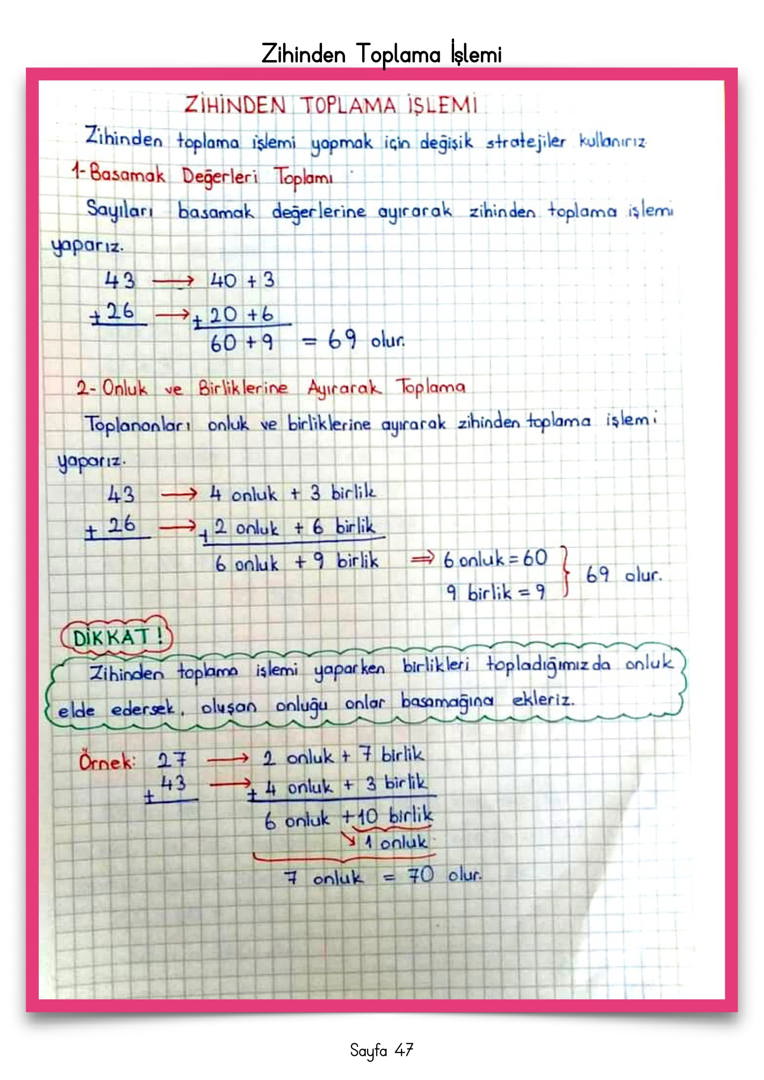 Zihinden Toplama İşlemi
ZİHİNDEN TOPLAMA İŞLEMİ
Zihinden toplama işlemi yapmak için değişik stratejiler kullanırız
1-Basamak Değerleri Toplamı
Sayıları basamak değerlerine ayırarak zihinden toplama işlemi
yaparız.
43 → 40 + 3
+ 26 → + 20 + 6
60 + 9 = 69 olur.
2- Onluk ve Birliklerine Ayırarak Toplama
Toplananları onluk ve birliklerine ayırarak zihinden toplama işlemi
yaparız.
43 → 4 onluk + 3 birlik
+ 26 → + 2 onluk + 6 birlik
6 onluk + 9 birlik ⇒ 6 onluk = 60
9 birlik = 9 } 69 olur.
DİKKAT!
Zihinden toplama işlemi yaparken birlikleri topladığımızda onluk
elde edersek, oluşan onluğu onlar basamağına ekleriz.
Örnek: 27 → 2 onluk + 7 birlik
+ 43 → + 4 onluk + 3 birlik
6 onluk + 10 birlik
↘ 1 onluk
7 onluk = 70 olur.
Sayfa 47